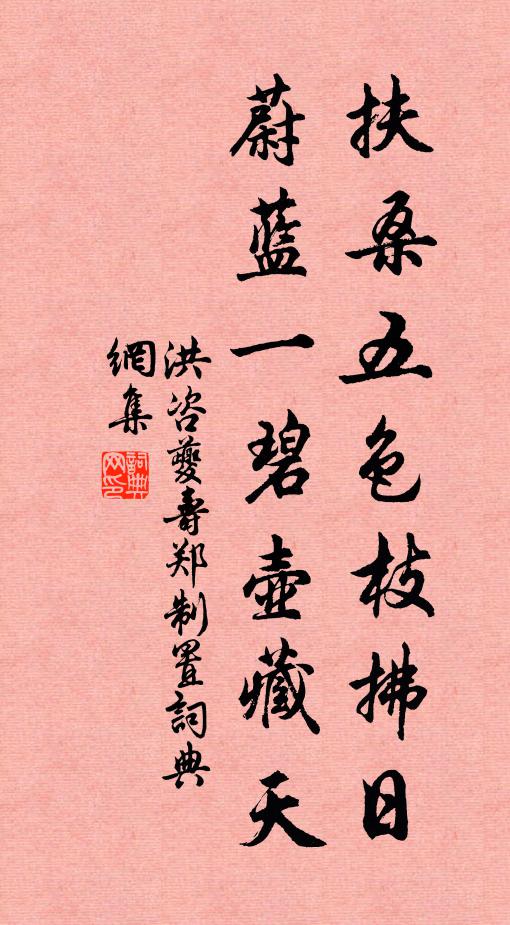 扶桑五色枝拂日
蔚藍一碧壺藏天
洪咨夔壽郑制置詞典
網集
詞典
网印